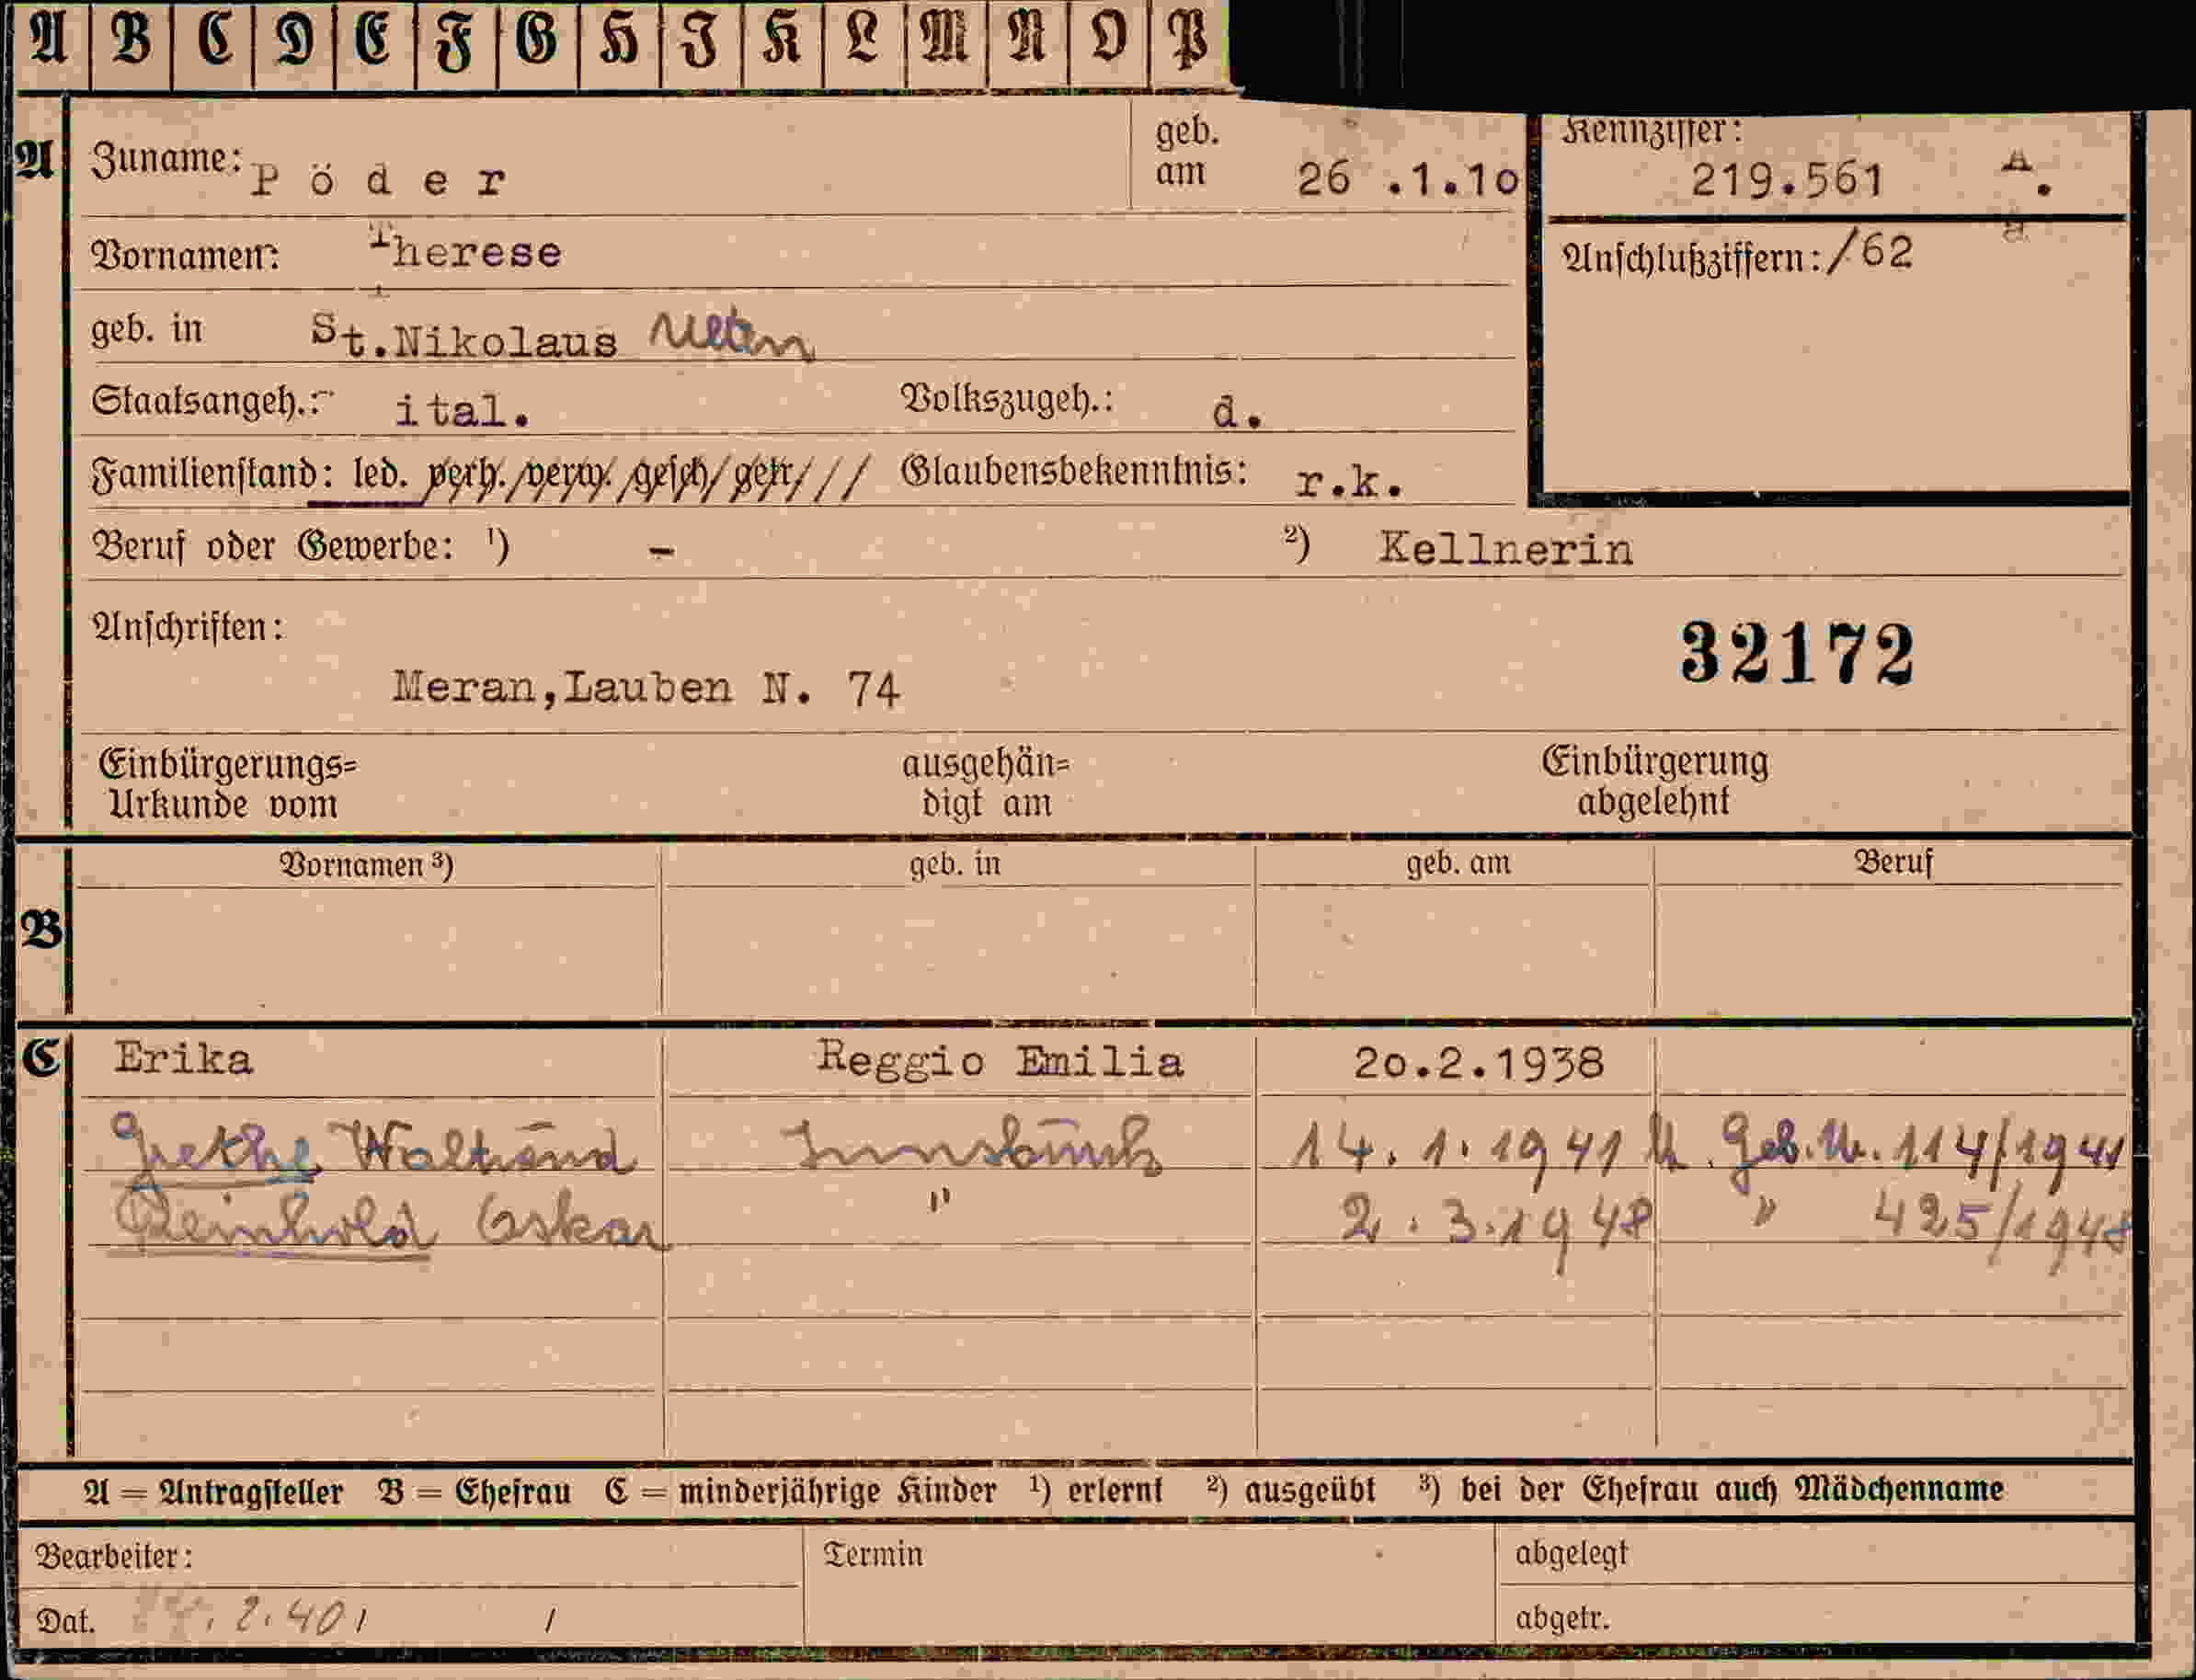 A B C D E F G H I K L M N O P
A Zuname: Pöder geb. am 26.1.10 Kennziffer: 219.561 A.
Vornamen: Therese Anschlußziffern: /62
geb. in St.Nikolaus Ulten
Staatsangeh.: ital. Volkszugeh.: d.
Familienstand: led. verh./verw./gesch/getr/// Glaubensbekenntnis: r.k.
Beruf oder Gewerbe: ¹) - ²) Kellnerin
Anschriften:
32172
Meran,Lauben N. 74
Einbürgerungs= ausgehän= Einbürgerung
Urkunde vom digt am abgelehnt
Vornamen ³) geb. in geb. am Beruf
B
C Erika Reggio Emilia 20.2.1938
Grethe Waltraud Innsbruck 14.1.1941 Geb. 114/1941
Reinhold Oskar " 2.3.1948 " 425/1948
A = Antragsteller B = Ehefrau C = minderjährige Kinder ¹) erlernt ²) ausgeübt ³) bei der Ehefrau auch Mädchenname
Bearbeiter: Termin abgelegt
Dat. .2.40/ / abgetr.